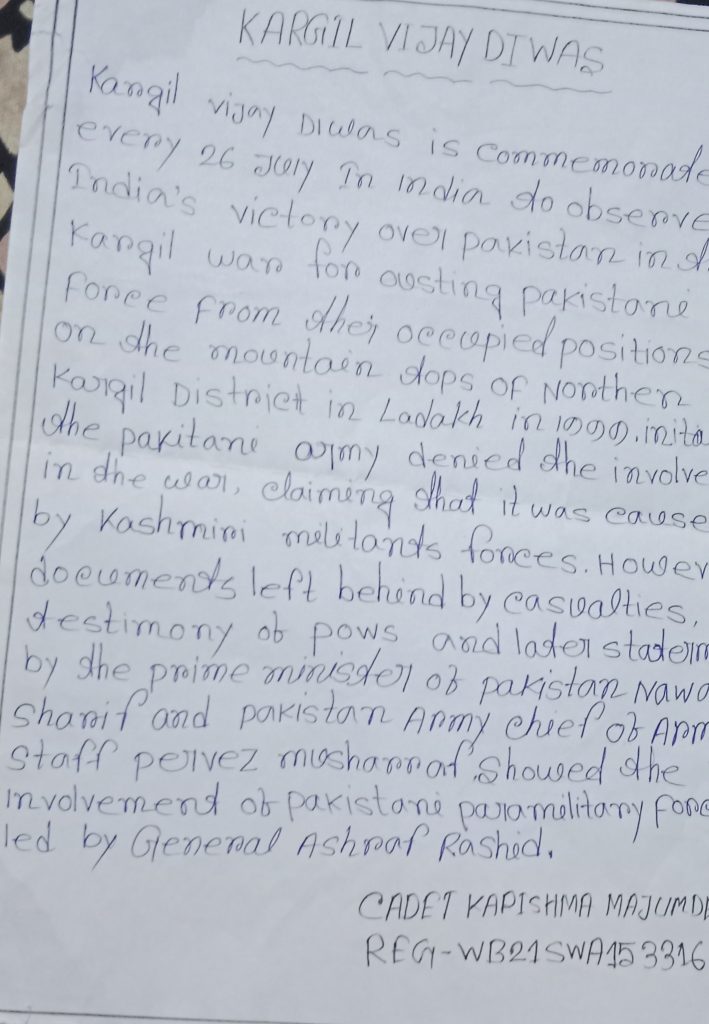 KARGIL VIJAY DIWAS
Kargil vijay Diwas is commemorate
every 26 July In india to observe
India's victory over pakistan in t
Kargil war for ousting pakistani
Force From their occupied positions
on the mountain tops of Northern
Kargil District in Ladakh in 1999. inita
the pakitani army denied the involve
in the war, claiming that it was cause
by Kashmiri militants forces. Howev
documents left behind by casualties,
testimony of pows and later statem
by the prime minister of pakistan Nawa
Sharif and pakistan Army chief of Arm
Staff pervez musharraf showed the
involvement of pakistani paramilitary forc
led by General Ashraf Rashid.
CADET KAPISHMA MAJUMD
REG-WB21SWA153316